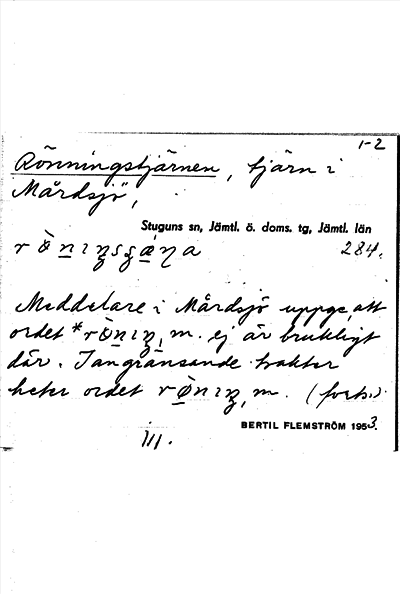 1-2
Rönningstjärnen, tjärn i
Mårdsjö,
Stuguns sn, Jämtl. ö. doms. tg, Jämtl. län
284.
Meddelare i Mårdsjö uppge, att
ordet *, m. ej är brukligt
där. I angränsande trakter
heter ordet , m. (forts.).
BERTIL FLEMSTRÖM 1953.